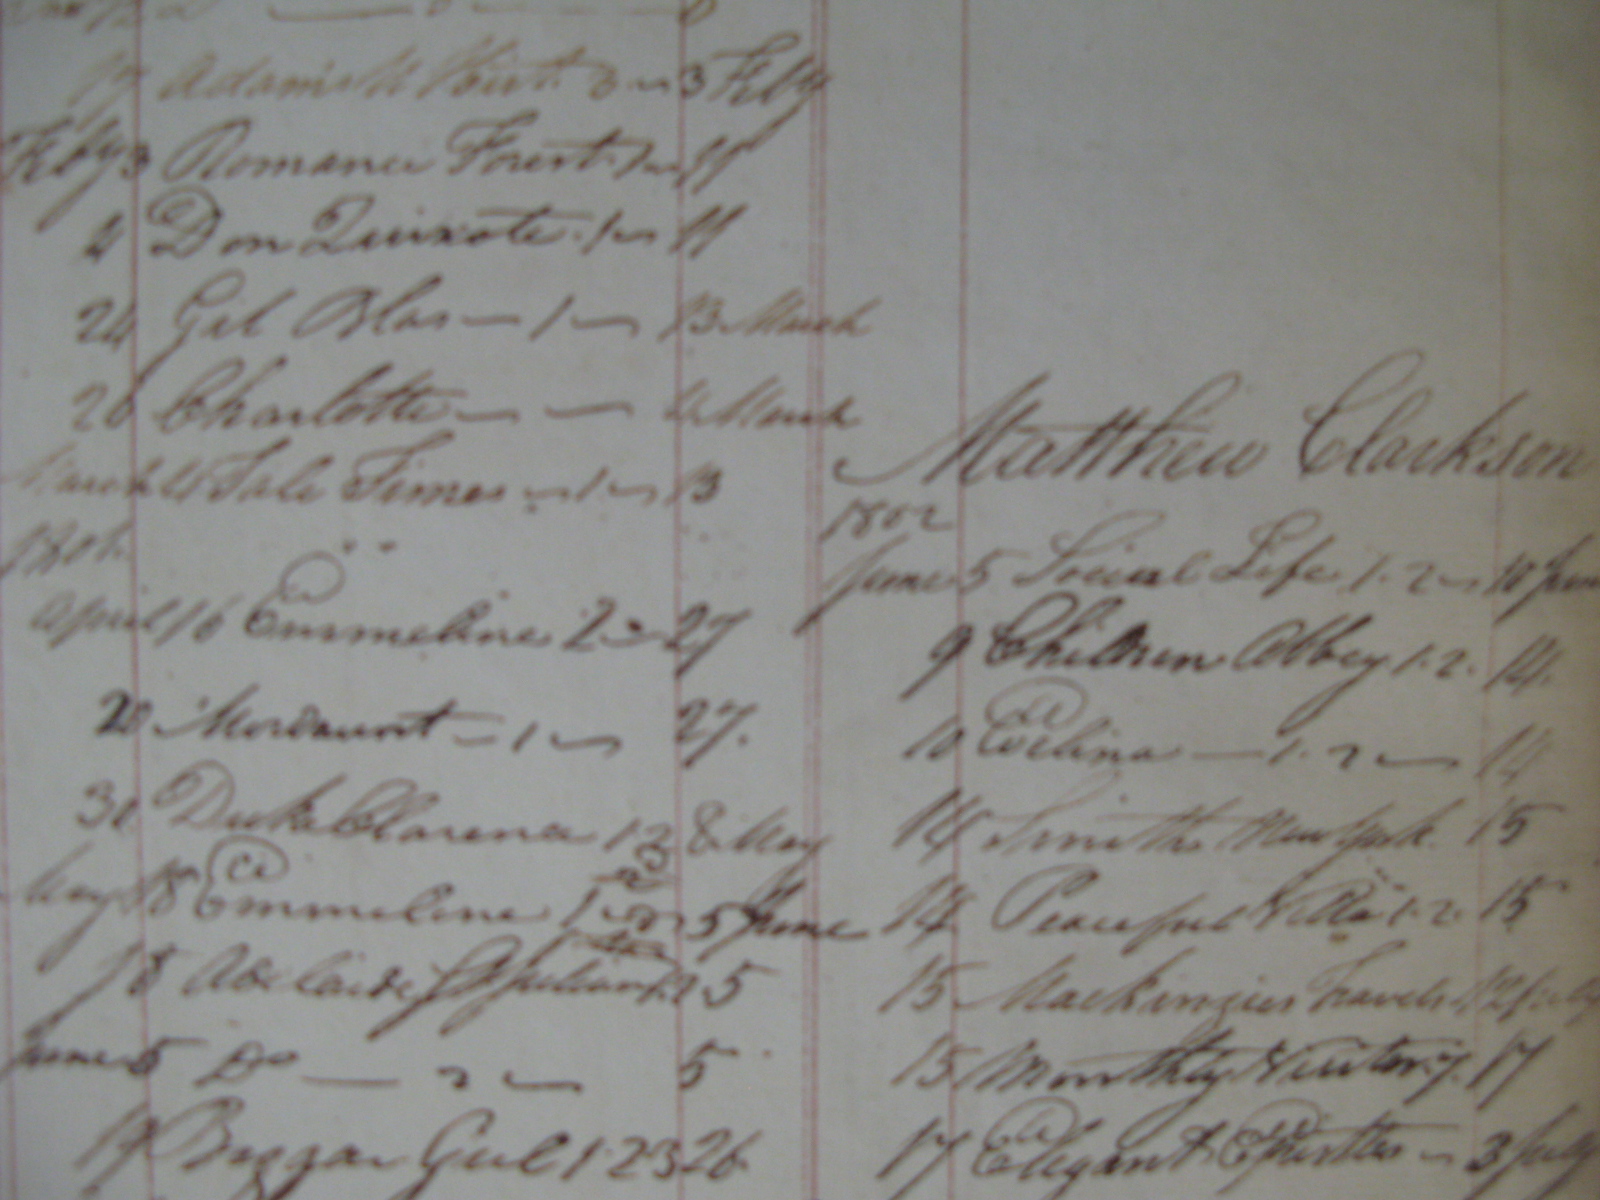 19 Adams N Hist. 3 3 Feby
Feby 3 Romance Forest. 1 11
4 Don Quixote. 1 11
24 Gil Blas — 1 13 March
26 Charlotte — — 4 March
March Tale Times 1 13
1801.
April 16 Emmeline 2 27
20 Mordaunt — 1 27.
30 Duke Clarence 1 2 8 May
May 18 Emmeline 5 June
18 Adelaide 5
June 5 Do — 2 5
19 Beggar Girl 1 2 3 26
Matthew Clarkson
1802
June 5 Social Life 1. 2 10 June
9 Children Abbey 1. 2. 14.
10 Evelina — 1. 2 — 14
14 Smiths New York. 15
14 Peaceful Villa 1. 2. 15
15 Mackenzies Travels 12 July
15 Monthly Visitor 7. 17
17 Elegant Epistles 3 July